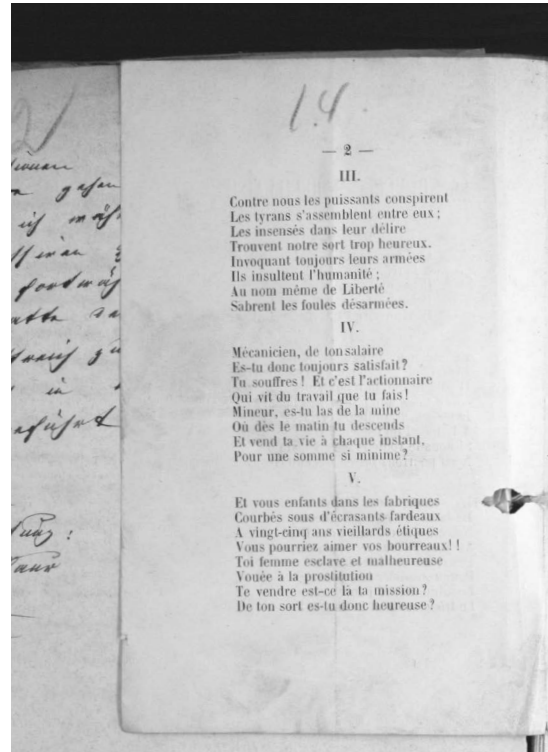 14.
— 2 —
III.
Contre nous les puissants conspirent
Les tyrans s'assemblent entre eux ;
Les insensés dans leur délire
Trouvent notre sort trop heureux.
Invoquant toujours leurs armées
Ils insultent l'humanité ;
Au nom même de Liberté
Sabrent les foules désarmées.
IV.
Mécanicien, de ton salaire
Es-tu donc toujours satisfait?
Tu souffres ! Et c'est l'actionnaire
Qui vit du travail que tu fais!
Mineur, es-tu las de la mine
Où dès le matin tu descends
Et vend ta vie à chaque instant.
Pour une somme si minime?
V.
Et vous enfants dans les fabriques
Courbés sous d'écrasants fardeaux
A vingt-cinq ans vieillards étiques
Vous pourriez aimer vos bourreaux! !
Toi femme esclave et malheureuse
Vouée à la prostitution
Te vendre est-ce là ta mission?
De ton sort es-tu donc heureuse?